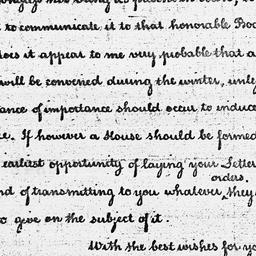 to communicate it to that honorable
does it appear to me very probable that a
will be convened during the winter,
ance of importance should occur to induce
If however a House should be formed
earliest opportunity of laying your Letter
orders.
nd of transmitting to you whatever they
to give on the subject of it.
With the best wishes for yo